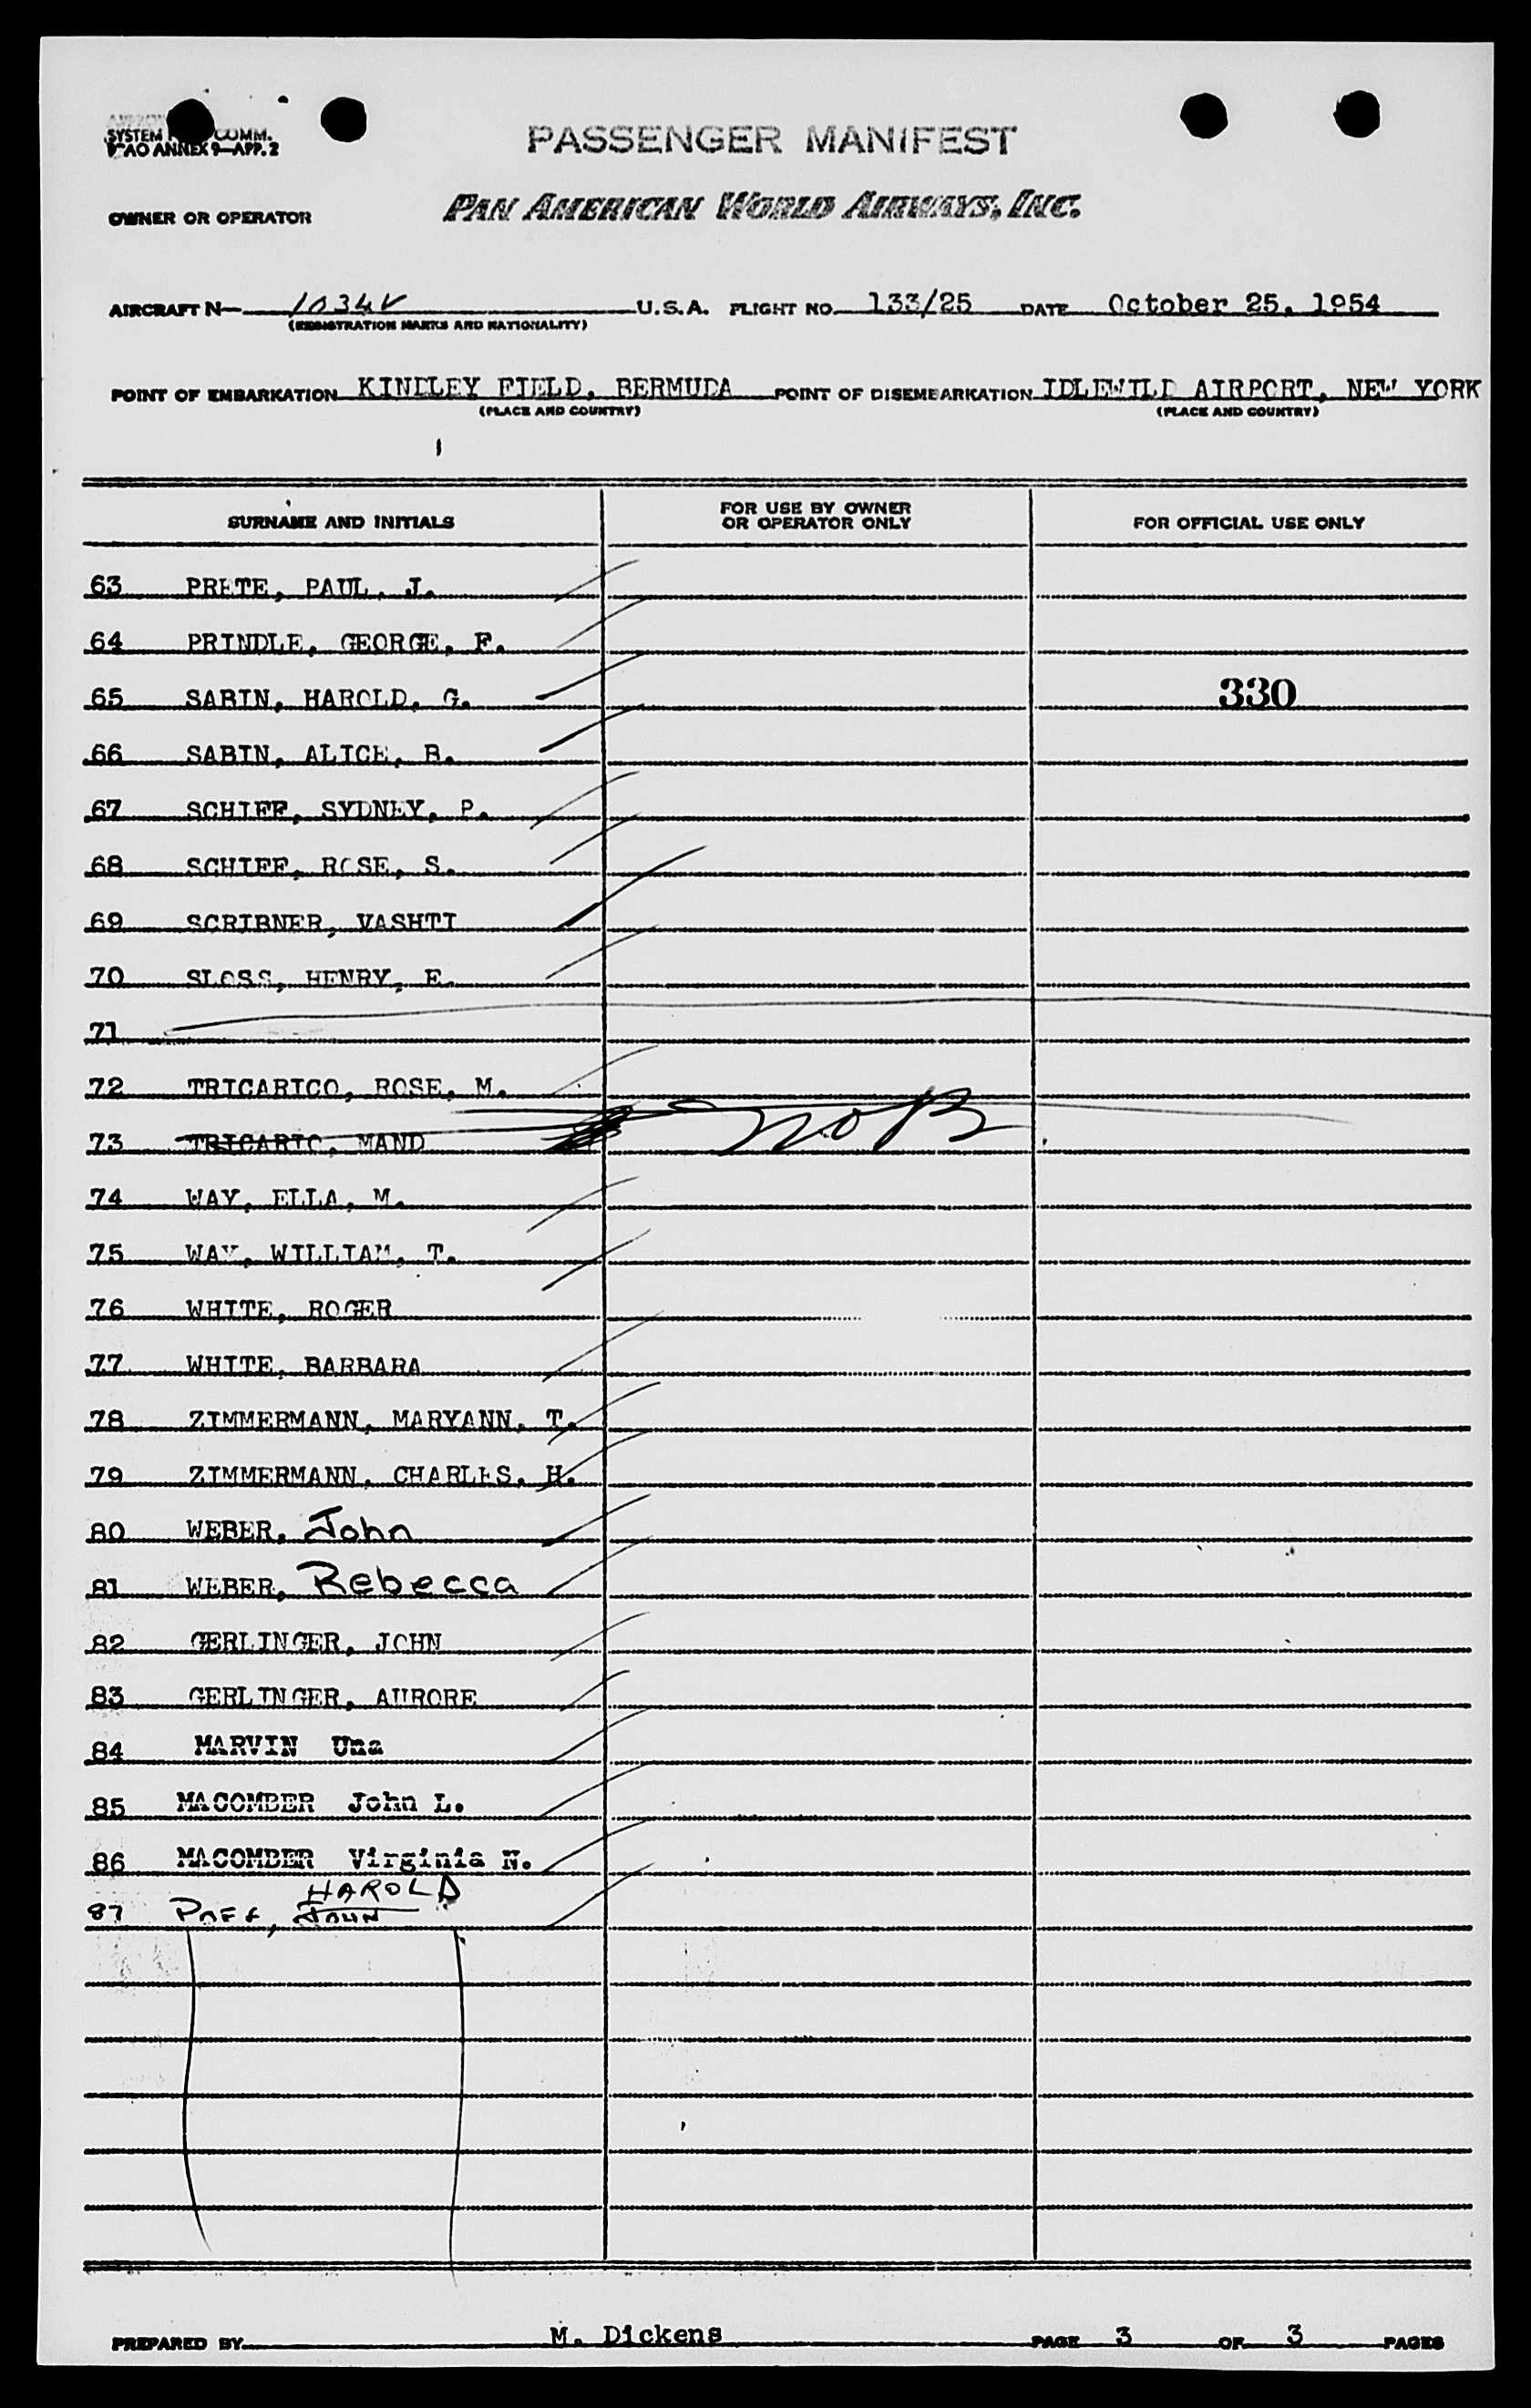 SYSTEM COMM.
ANNEX 9—APP. 2
PASSENGER MANIFEST
OWNER OR OPERATOR PAN AMERICAN WORLD AIRWAYS, INC.
AIRCRAFT N— 1034V U.S.A. FLIGHT NO. 133/25 DATE October 25, 1954
(REGISTRATION MARKS AND NATIONALITY)
POINT OF EMBARKATION KINDLEY FIELD, BERMUDA POINT OF DISEMBARKATION IDLEWILD AIRPORT, NEW YORK
(PLACE AND COUNTRY) (PLACE AND COUNTRY)
SURNAME AND INITIALS FOR USE BY OWNER OR OPERATOR ONLY FOR OFFICIAL USE ONLY
63 PRETE, PAUL, J.
64 PRINDLE, GEORGE, F.
65 SABIN, HAROLD, G. 330
66 SABIN, ALICE, B.
67 SCHIFF, SYDNEY, P.
68 SCHIFF, ROSE, S.
69 SCRIBNER, VASHTI
70 SLOSS, HENRY, E.
71
72 TRICARICO, ROSE, M.
73 TRICARIC, MAND NOB
74 WAY, ELLA, M.
75 WAY, WILLIAM, T.
76 WHITE, ROGER
77 WHITE, BARBARA
78 ZIMMERMANN, MARYANN, T.
79 ZIMMERMANN, CHARLES, H.
80 WEBER, John
81 WEBER, Rebecca
82 GERLINGER, JOHN
83 GERLINGER, AURORE
84 MARVIN Una
85 MACOMBER John L.
86 MACOMBER Virginia N.
HAROLD
87 POFF, JOHN
PREPARED BY M. Dickens PAGE 3 OF 3 PAGES